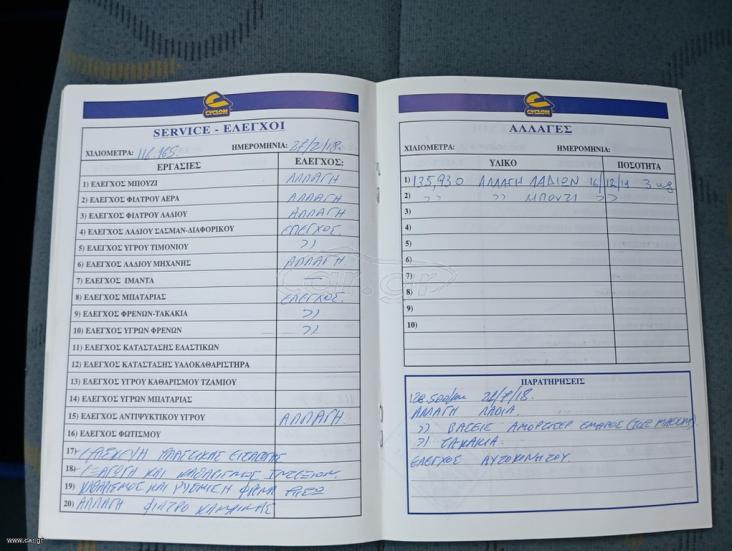 CYCLON
SERVICE - ΕΛΕΓΧΟΙ
ΧΙΛΙΟΜΕΤΡΑ: ΗΜΕΡΟΜΗΝΙΑ:
ΕΡΓΑΣΙΕΣ ΕΛΕΓΧΟΣ:
1) ΕΛΕΓΧΟΣ ΜΠΟΥΖΙ ΑΛΛΑΓΗ
2) ΕΛΕΓΧΟΣ ΦΙΛΤΡΟΥ ΑΕΡΑ ΑΛΛΑΓΗ
3) ΕΛΕΓΧΟΣ ΦΙΛΤΡΟΥ ΛΑΔΙΟΥ ΑΛΛΑΓΗ
4) ΕΛΕΓΧΟΣ ΛΑΔΙΟΥ ΣΑΣΜΑΝ-ΔΙΑΦΟΡΙΚΟΥ ΕΛΕΓΧΟΣ
5) ΕΛΕΓΧΟΣ ΥΓΡΟΥ ΤΙΜΟΝΙΟΥ >>
6) ΕΛΕΓΧΟΣ ΛΑΔΙΟΥ ΜΗΧΑΝΗΣ ΑΛΛΑΓΗ
7) ΕΛΕΓΧΟΣ ΙΜΑΝΤΑ —
8) ΕΛΕΓΧΟΣ ΜΠΑΤΑΡΙΑΣ ΕΛΕΓΧΟΣ
9) ΕΛΕΓΧΟΣ ΦΡΕΝΩΝ-ΤΑΚΑΚΙΑ >>
10) ΕΛΕΓΧΟΣ ΥΓΡΩΝ ΦΡΕΝΩΝ >>
11) ΕΛΕΓΧΟΣ ΚΑΤΑΣΤΑΣΗΣ ΕΛΑΣΤΙΚΩΝ
12) ΕΛΕΓΧΟΣ ΚΑΤΑΣΤΑΣΗΣ ΥΑΛΟΚΑΘΑΡΙΣΤΗΡΑ
13) ΕΛΕΓΧΟΣ ΥΓΡΟΥ ΚΑΘΑΡΙΣΜΟΥ ΤΖΑΜΙΟΥ
14) ΕΛΕΓΧΟΣ ΥΓΡΩΝ ΜΠΑΤΑΡΙΑΣ
15) ΕΛΕΓΧΟΣ ΑΝΤΙΨΥΚΤΙΚΟΥ ΥΓΡΟΥ ΑΛΛΑΓΗ
16) ΕΛΕΓΧΟΣ ΦΩΤΙΣΜΟΥ
17)
18) ΚΑΙ ΚΑΘΑΡΙΣΜΟΣ
19) ΚΑΘΑΡΙΣΜΟΣ ΚΑΙ
20) ΑΛΛΑΓΗ ΦΙΛΤΡΟ ΚΑΜΠΙΝΑΣ
CYCLON
ΑΛΛΑΓΕΣ
ΧΙΛΙΟΜΕΤΡΑ: ΗΜΕΡΟΜΗΝΙΑ:
ΥΛΙΚΟ ΠΟΣΟΤΗΤΑ
1) 135,930 ΑΛΛΑΓΗ ΛΑΔΙΩΝ
2) >> >> ΜΠΟΥΖΙ >>
3)
4)
5)
6)
7)
8)
9)
10)
ΠΑΡΑΤΗΡΗΣΕΙΣ
ΑΛΛΑΓΗ ΛΑΔΙΑ
>> ΒΑΣΕΙΣ ΑΜΟΡΤΙΣΕΡ
>> ΤΑΚΑΚΙΑ
ΕΛΕΓΧΟΣ ΑΥΤΟΚΙΝΗΤΟΥ
car.gr
www.car.gr